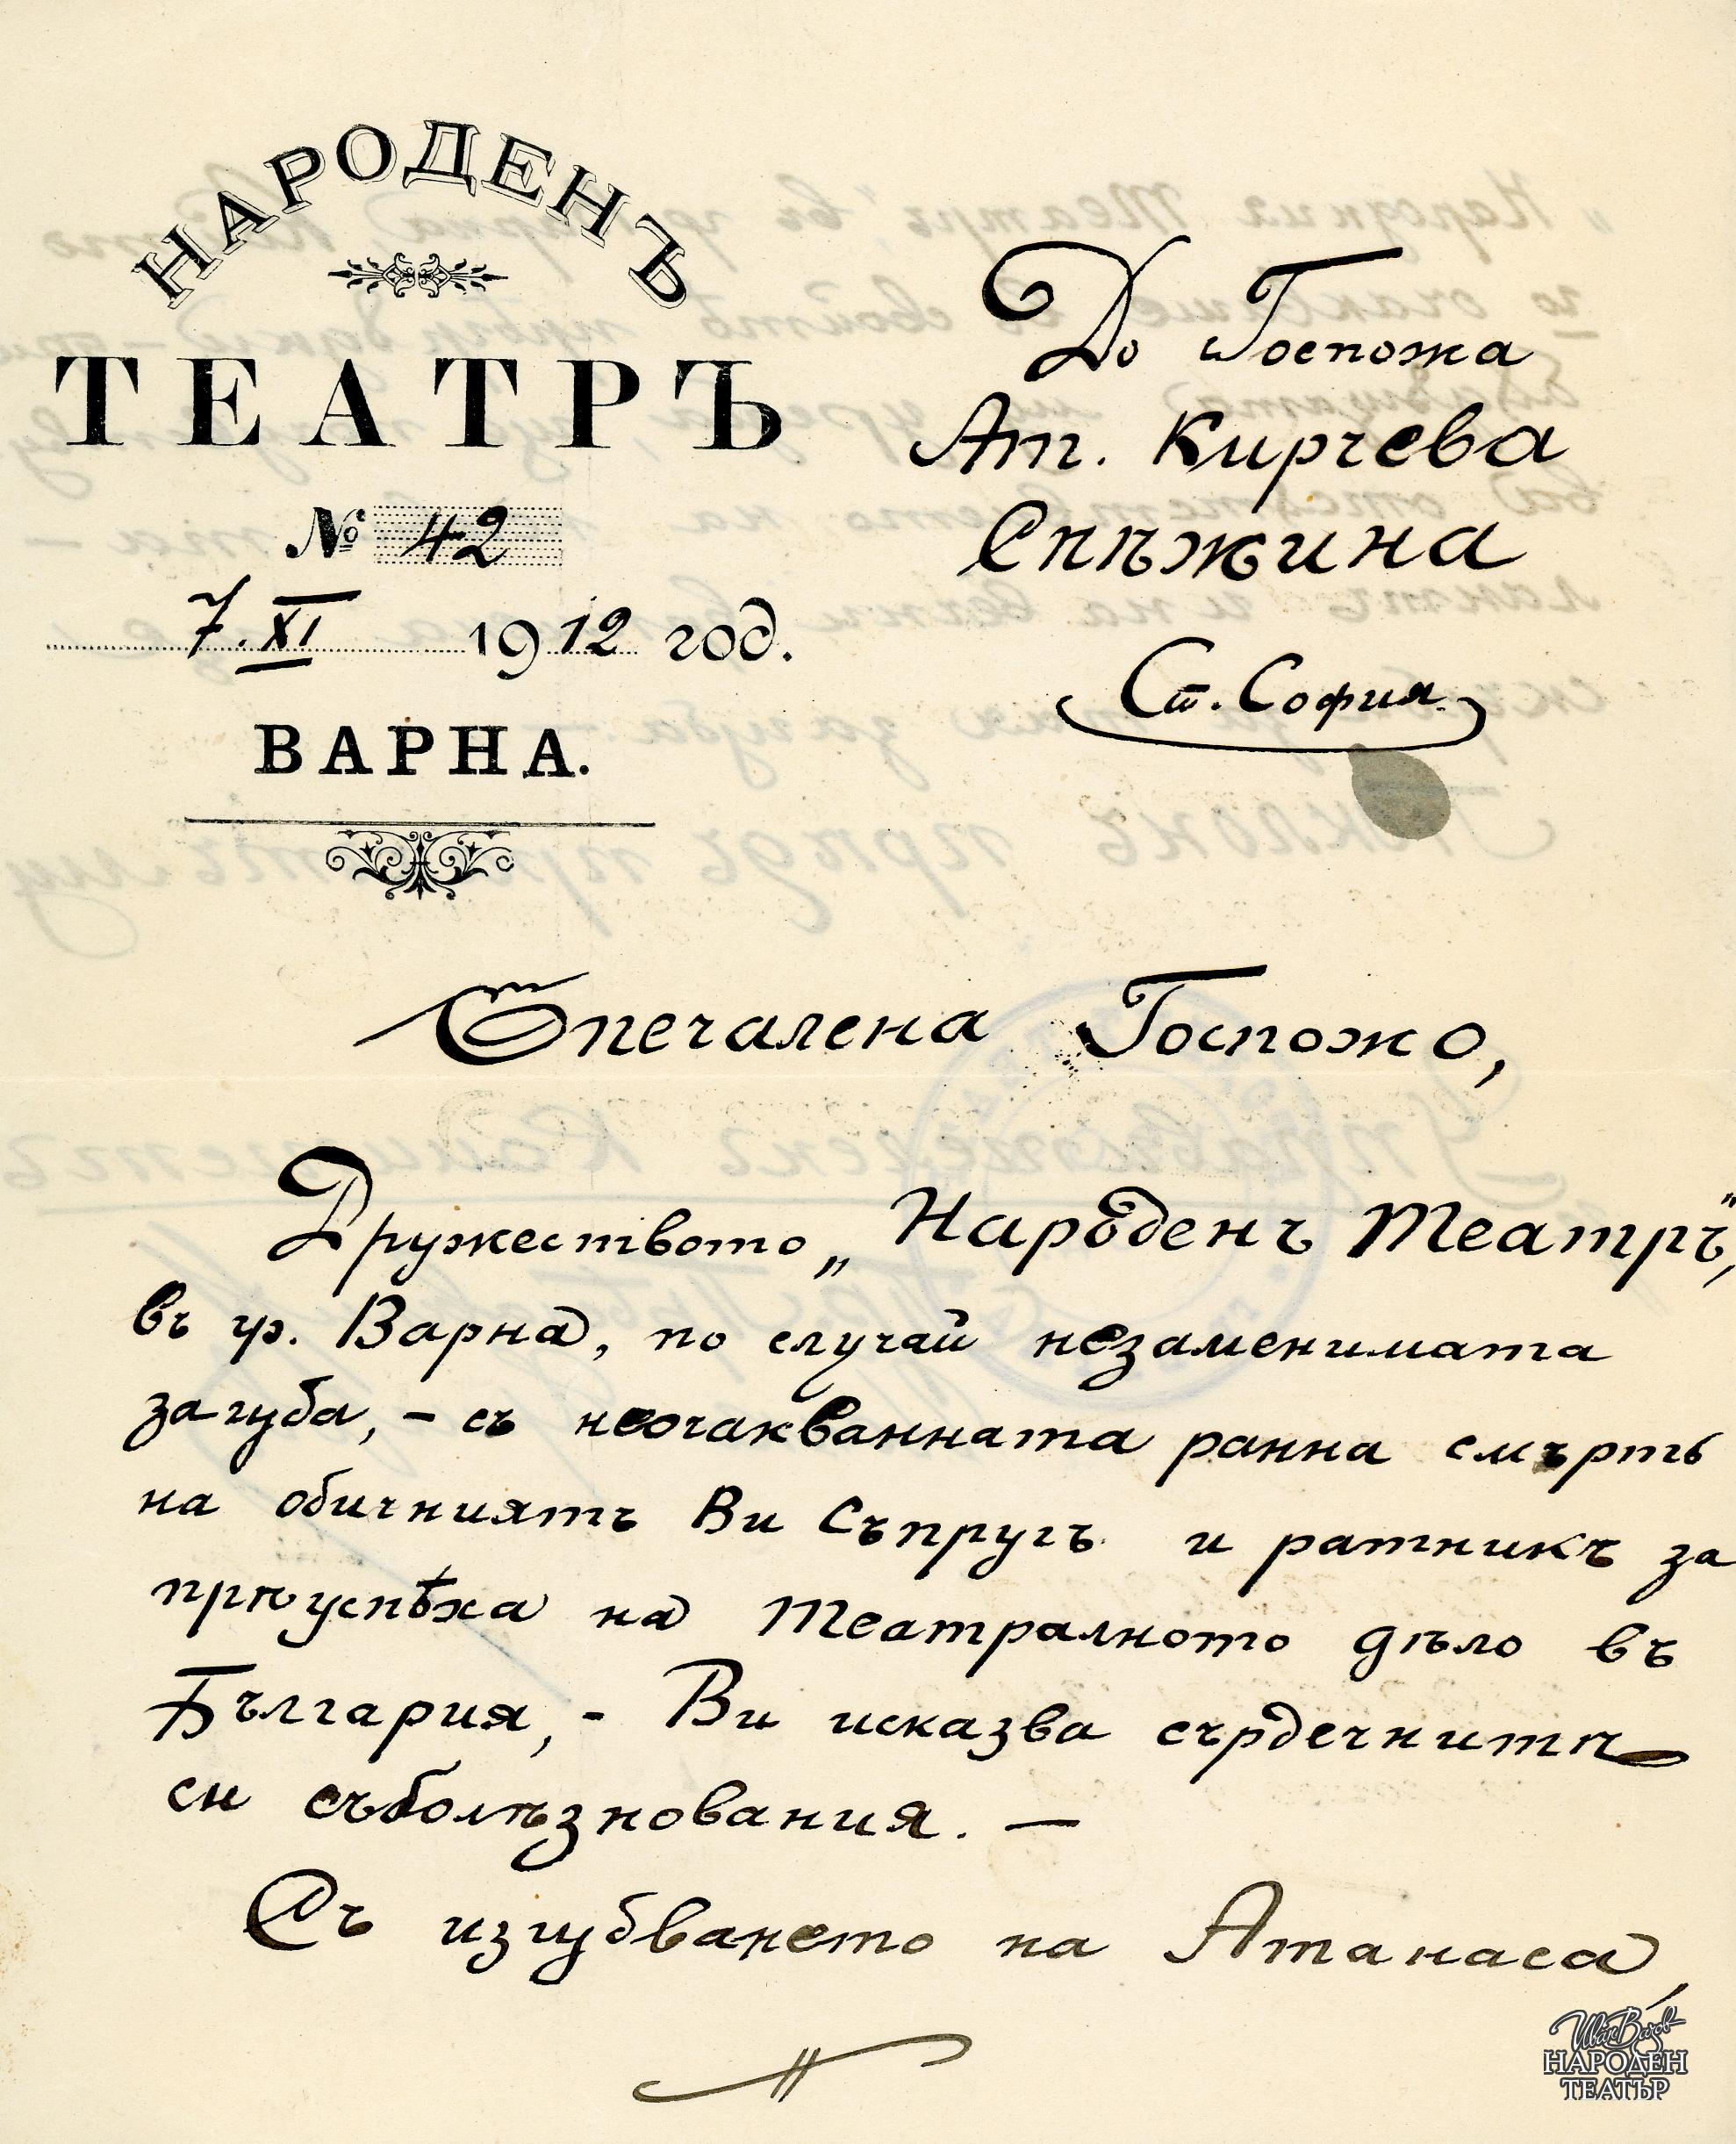 НАРОДЕНЪ
ТЕАТРЪ
№ 42
7.XI 1912 год.
ВАРНА.
До Госпожа
Ат. Кирчева
Снѣжина
Ст. София.
Опечалена Госпожо,
Дружеството „Народенъ Театръ",
въ гр. Варна, по случай незаменимата
загуба, – съ неочакванната ранна смърть
на обичниятъ Ви Съпругъ и ратникъ за
прѣуспѣха на Театралното дѣло въ
България, - Ви исказва сърдечнитѣ
си съболѣзнования. —
Съ изгубването на Атанаса,
Иван Вазов
НАРОДЕН
ТЕАТЪР